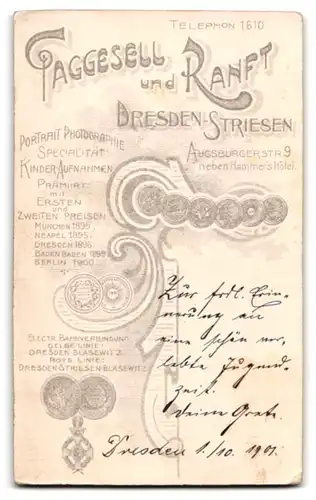 TELEPHON 1610
TAGGESELL
und RANFT
DRESDEN-STRIESEN
PORTRAIT PHOTOGRAPHIE
SPECIALITÄT:
KINDER-AUFNAHMEN
AUGSBURGERSTR 9
neben Hammer's Hôtel.
PRÄMIIRT
mit
ERSTEN
und
ZWEITEN PREISEN
MÜNCHEN 1895
NEAPEL 1895
DRESDEN 1896
BADEN BADEN 1899
BERLIN 1900
ELECTR. BAHNVERBINDUNG
GELBE LINIE:
DRESDEN BLASEWITZ
ROTE LINIE:
DRESDEN STRIESEN-BLASEWITZ
Zur frdl. Erin-
nerung an
eine schön ver-
lebte Jugend-
zeit.
Deine Grete.
Dresden 1./10. 1901.